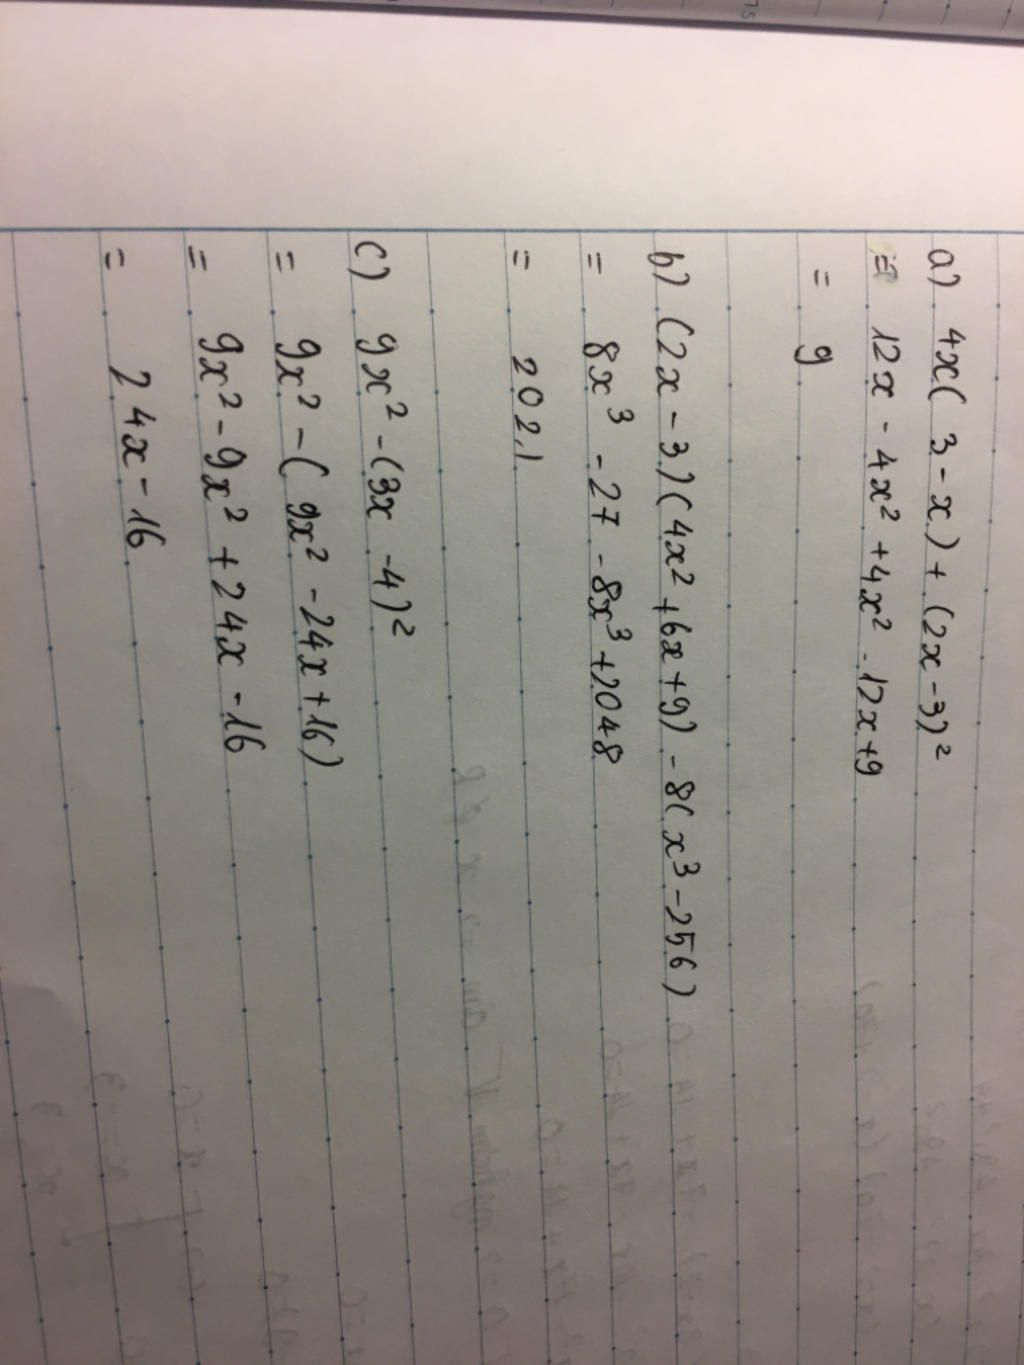 a) 4x( 3 - x) + (2x - 3)²
= 12x - 4x² + 4x² - 12x + 9
= 9
b) (2x - 3)(4x² + 6x + 9) - 8(x³ - 256)
= 8x³ - 27 - 8x³ + 2048
= 2021
c) 9x² - (3x - 4)²
= 9x² - (9x² - 24x + 16)
= 9x² - 9x² + 24x - 16
= 24x - 16